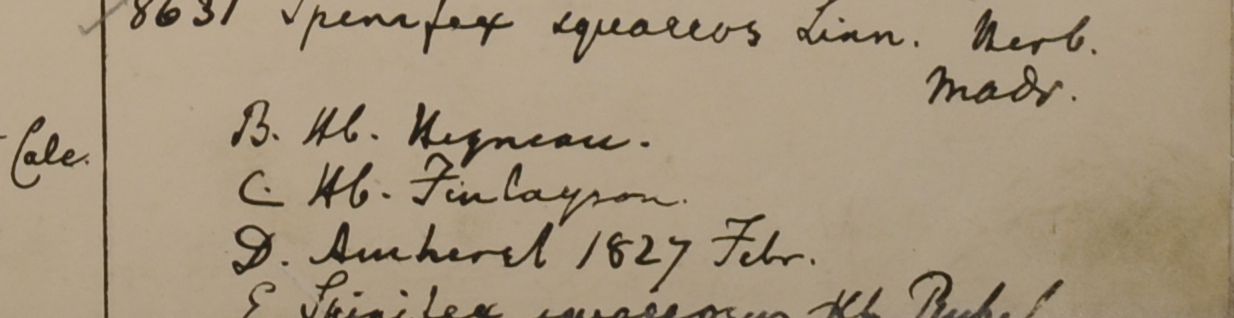 8631 Spinifex squarros Linn. Herb.
Madr.
B. Hb. Heyneau.
Calc.
C. Hb. Finlayson.
D. Amherst 1827 Febr.
E Spinifex Hb